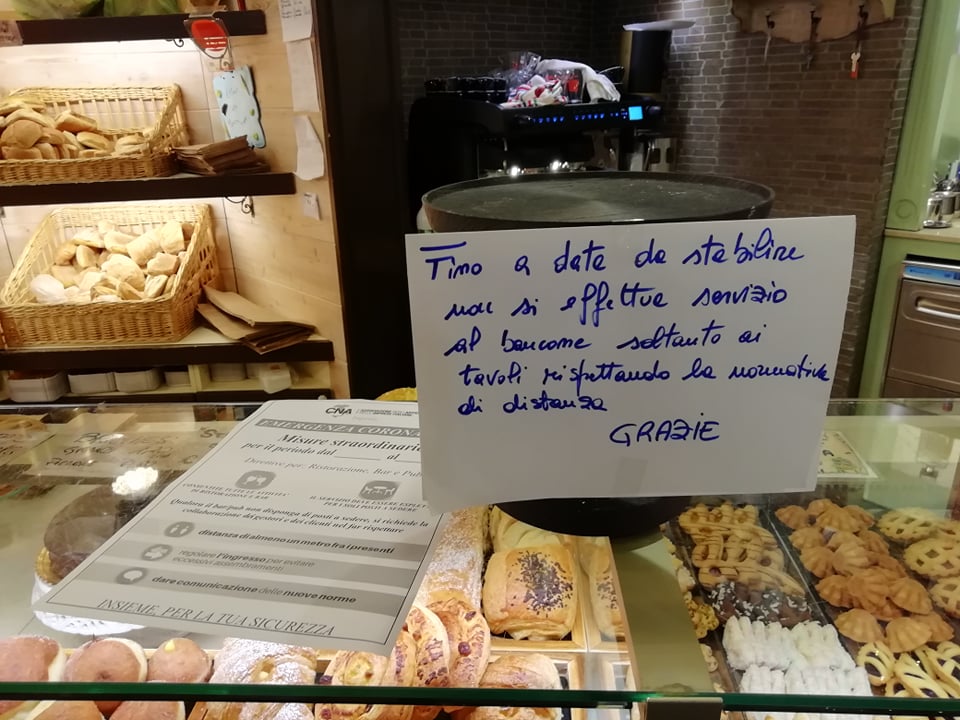 Fino a data da stabilire
non si effettua servizio
al bancone soltanto ai
tavoli rispettando la normativa
di distanza
GRAZIE
CNA
EMERGENZA CORONA
Misure straordinarie
per il periodo dal ______ al
Direttive per: Ristorazione, Bar e Pub
CONSENTITE TUTTE LE ATTIVITA'
DI RISTORAZIONE E BAR
IL SERVIZIO DEVE ESSERE ESPLET
PER I SOLI POSTI A SEDERE
Qualora il bar/pub non disponga di posti a sedere, si richiede la
collaborazione dei gestori e dei clienti nel far rispettare
distanza di almeno un metro fra i presenti
regolare l'ingresso per evitare
eccessivi assembramenti
dare comunicazione delle nuove norme
INSIEME, PER LA TUA SICUREZZA